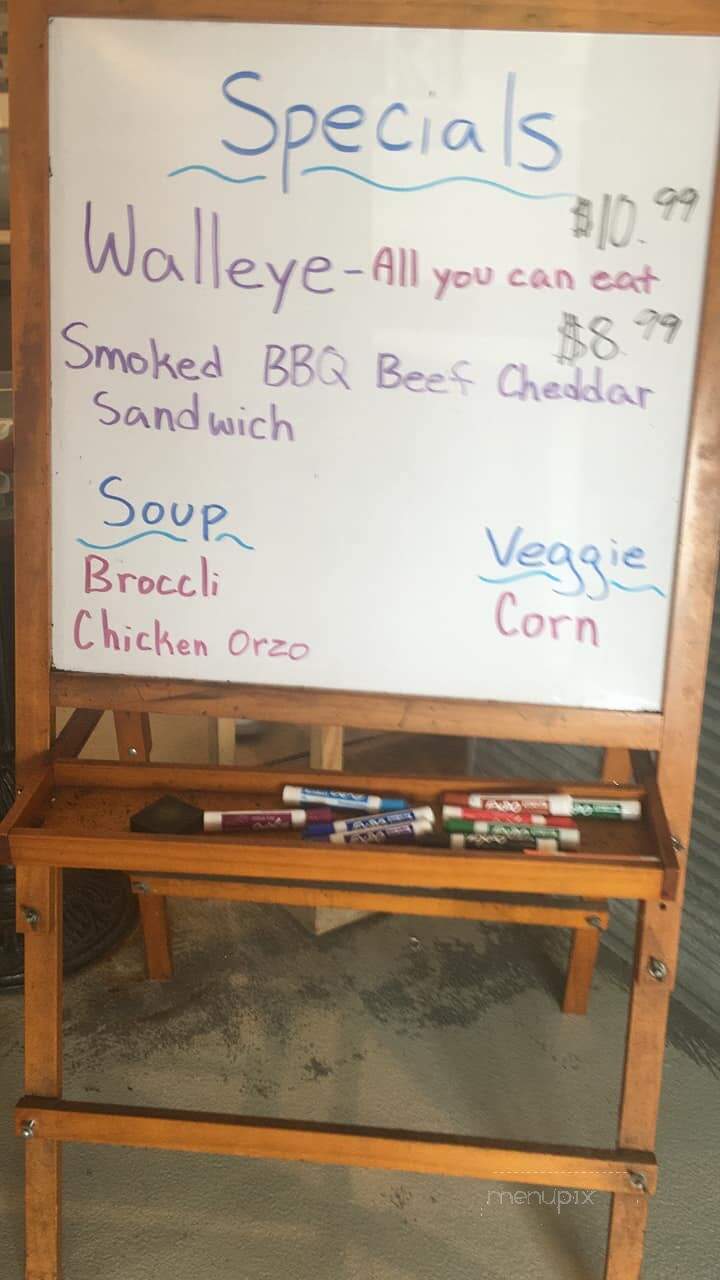 Specials
$10.99
Walleye - All you can eat
$8.99
Smoked BBQ Beef Cheddar
Sandwich
Soup
Broccli
Chicken Orzo
Veggie
Corn
menupix